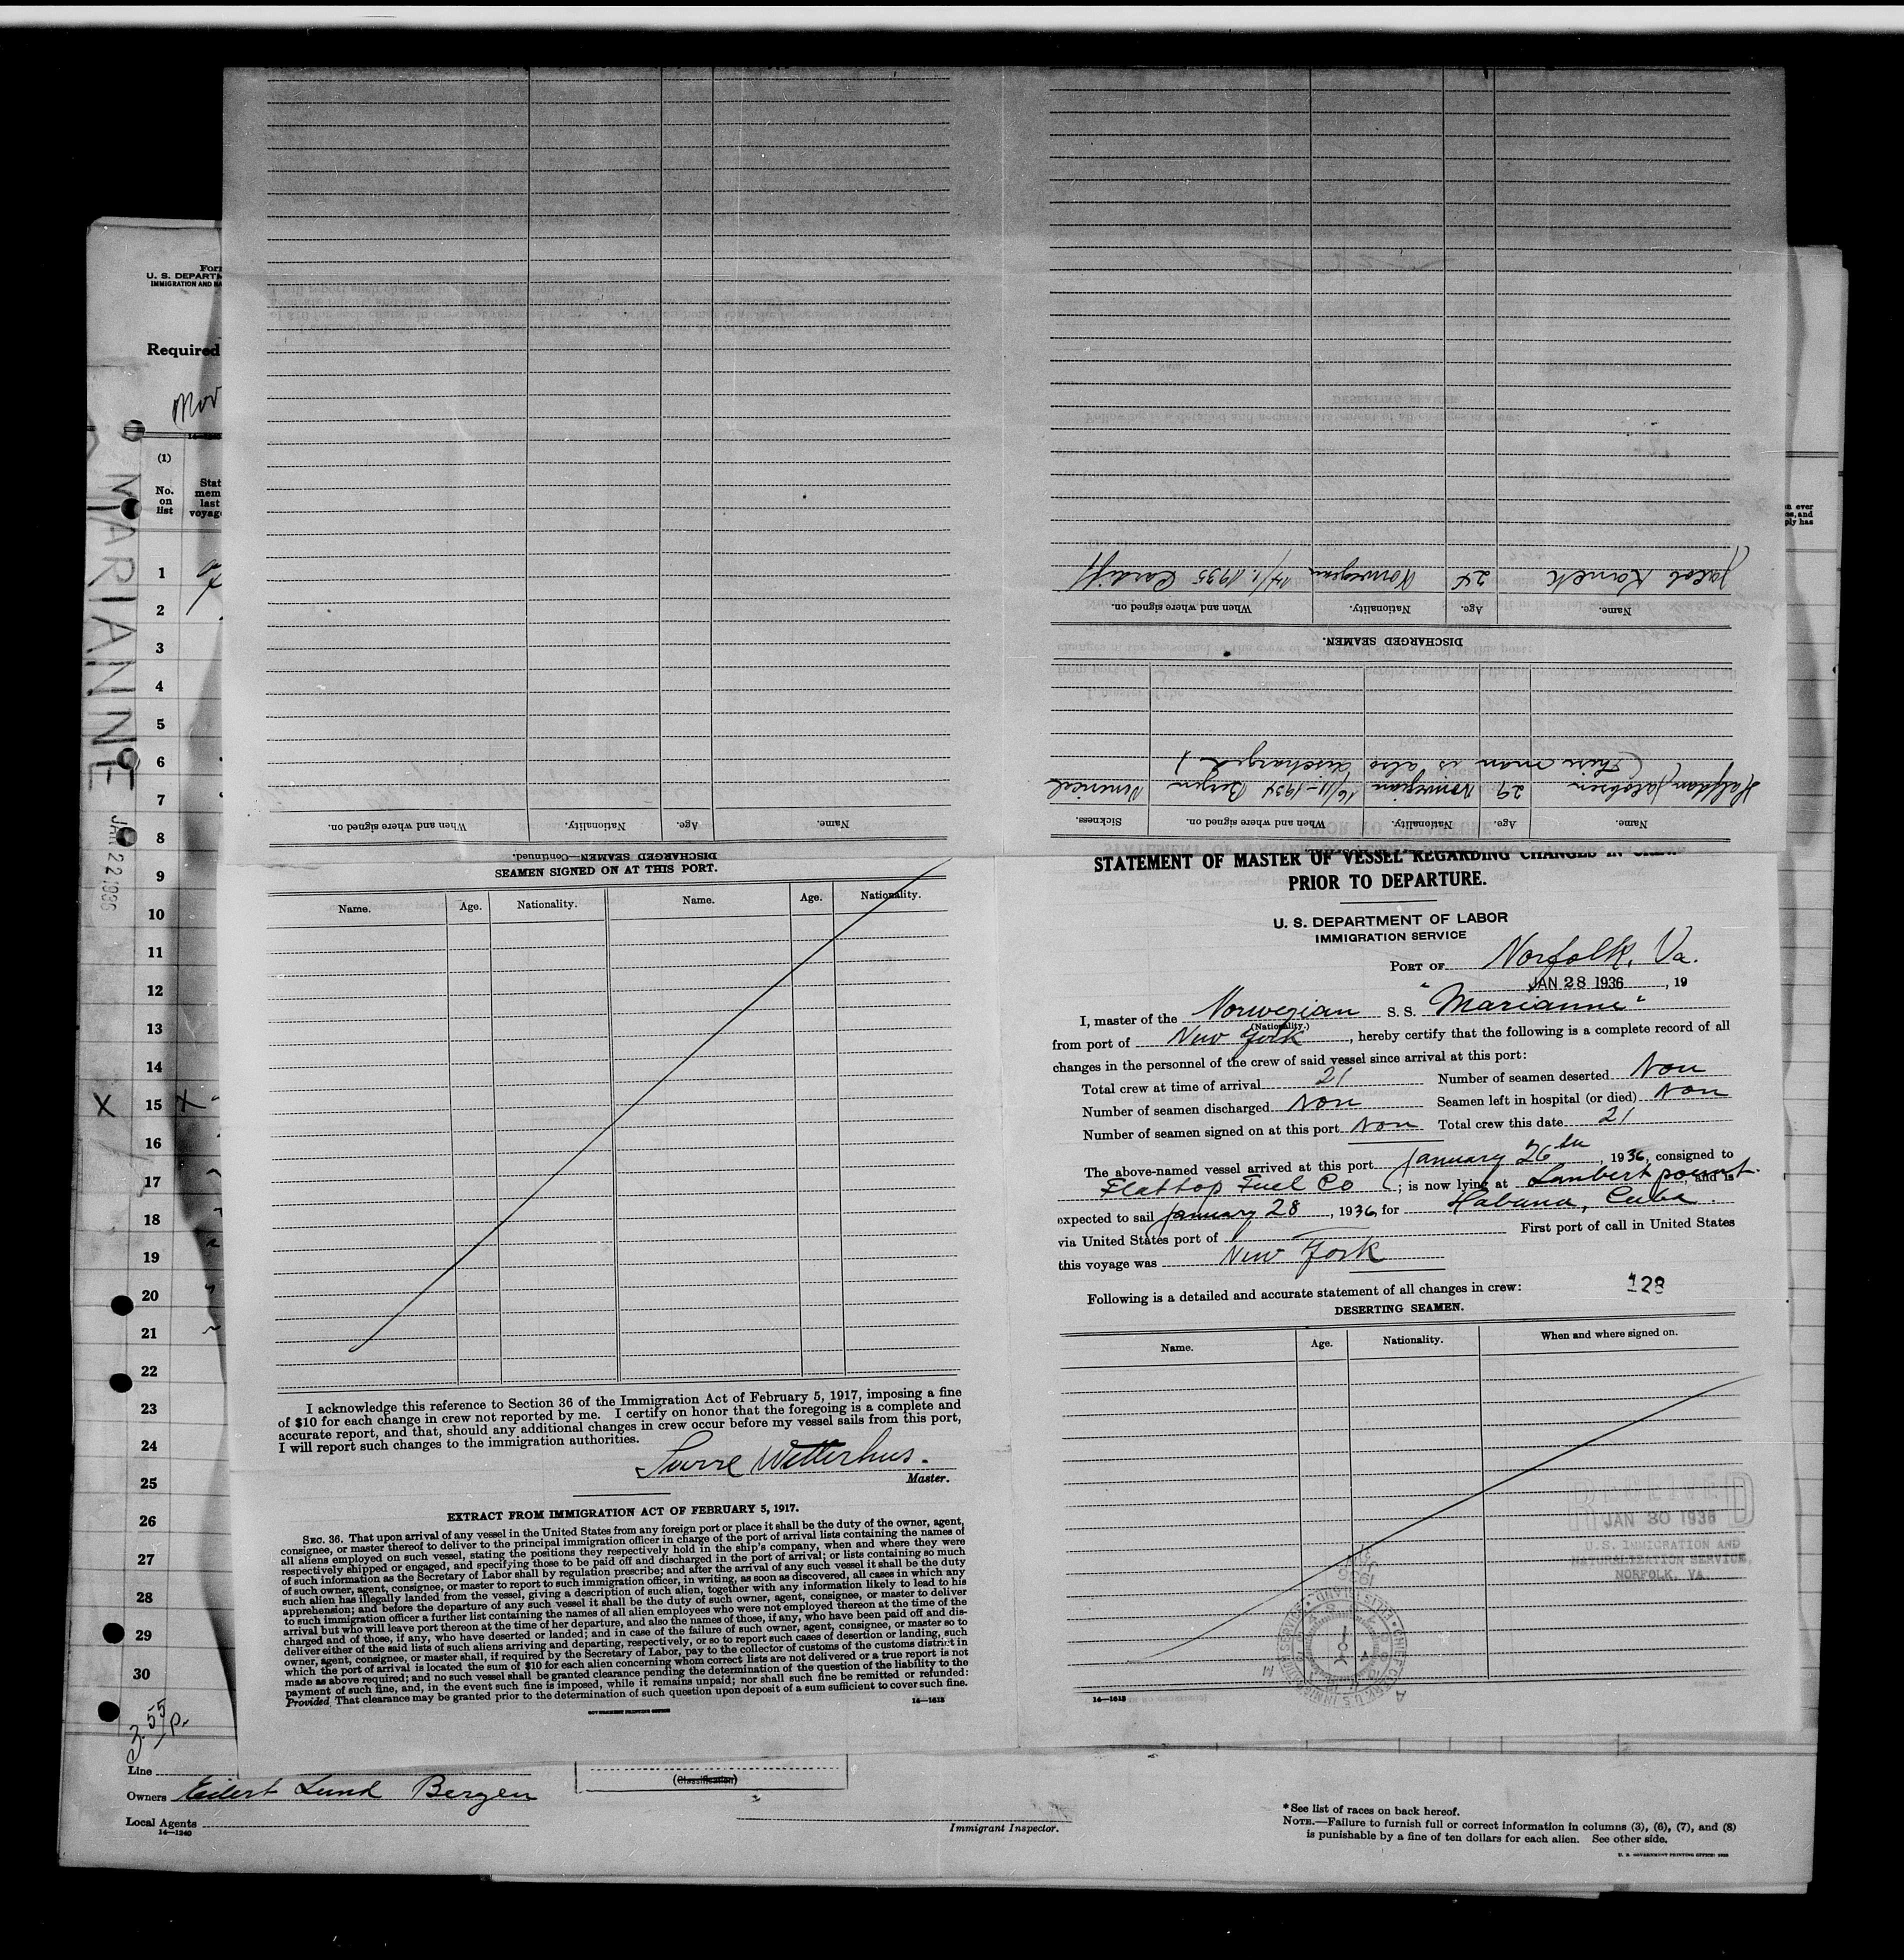 Form
U. S. DEPARTM
IMMIGRATION AND NA
Required
Mor
MARIANNE
JAN 22 1936
(1)
No. on list
Stat
mem
last
voyage
1
2
3
4
5
6
7
8
9
10
11
12
13
14
X 15 X
16
17
18
19
20
21
22
23
24
25
26
27
28
29
30
3.55 p.
Line
Owners Eilert Lund Bergen
Local Agents
14—1240
(Classification)
Immigrant Inspector.
*See list of races on back hereof.
NOTE.—Failure to furnish full or correct information in columns (3), (6), (7), and (8)
is punishable by a fine of ten dollars for each alien. See other side.
U. S. GOVERNMENT PRINTING OFFICE: 1932
n ever
es, and
ply has
Name. Age. Nationality. When and where signed on. Sickness.
Halfdan Jacobsen 29 Norwegian 16/11-1934 Bergen Venerical
(this man is also discharged)
DISCHARGED SEAMEN.
Name. Age. Nationality. When and where signed on.
Jacob 24 Norwegian 14/1. 1935 Cardiff
DISCHARGED SEAMEN—Continued.
Name. Age. Nationality. When and where signed on.
SEAMEN SIGNED ON AT THIS PORT.
Name. Age. Nationality. Name. Age. Nationality.
I acknowledge this reference to Section 36 of the Immigration Act of February 5, 1917, imposing a fine
of $10 for each change in crew not reported by me. I certify on honor that the foregoing is a complete and
accurate report, and that, should any additional changes in crew occur before my vessel sails from this port,
I will report such changes to the immigration authorities.
Sverre Wetterhus.
Master.
EXTRACT FROM IMMIGRATION ACT OF FEBRUARY 5, 1917.
SEC. 36. That upon arrival of any vessel in the United States from any foreign port or place it shall be the duty of the owner, agent,
consignee, or master thereof to deliver to the principal immigration officer in charge of the port of arrival lists containing the names of
all aliens employed on such vessel, stating the positions they respectively hold in the ship's company, when and where they were
respectively shipped or engaged, and specifying those to be paid off and discharged in the port of arrival; or lists containing so much
of such information as the Secretary of Labor shall by regulation prescribe; and after the arrival of any such vessel it shall be the duty
of such owner, agent, consignee, or master to report to such immigration officer, in writing, as soon as discovered, all cases in which any
such alien has illegally landed from the vessel, giving a description of such alien, together with any information likely to lead to his
apprehension; and before the departure of any such vessel it shall be the duty of such owner, agent, consignee, or master to deliver
to such immigration officer a further list containing the names of all alien employees who were not employed thereon at the time of the
arrival but who will leave port thereon at the time of her departure, and also the names of those, if any, who have been paid off and dis-
charged and of those, if any, who have deserted or landed; and in case of the failure of such owner, agent, consignee, or master so to
deliver either of the said lists of such aliens arriving and departing, respectively, or so to report such cases of desertion or landing, such
owner, agent, consignee, or master shall, if required by the Secretary of Labor, pay to the collector of customs of the customs district in
which the port of arrival is located the sum of $10 for each alien concerning whom correct lists are not delivered or a true report is not
made as above required; and no such vessel shall be granted clearance pending the determination of the question of the liability to the
payment of such fine, and, in the event such fine is imposed, while it remains unpaid; nor shall such fine be remitted or refunded:
Provided, That clearance may be granted prior to the determination of such question upon deposit of a sum sufficient to cover such fine.
14—1613
GOVERNMENT PRINTING OFFICE
STATEMENT OF MASTER OF VESSEL REGARDING CHANGES IN CREW
PRIOR TO DEPARTURE.
U. S. DEPARTMENT OF LABOR
IMMIGRATION SERVICE
PORT OF Norfolk, Va.
JAN 28 1936, 19
I, master of the Norwegian S. S. "Marianne"
(Nationality.)
from port of New York, hereby certify that the following is a complete record of all
changes in the personnel of the crew of said vessel since arrival at this port:
Total crew at time of arrival 21 Number of seamen deserted Non
Number of seamen discharged Non Seamen left in hospital (or died) Non
Number of seamen signed on at this port Non Total crew this date 21
The above-named vessel arrived at this port January 26th, 1936, consigned to
Flattop Fuel Co; is now lying at Lambert point, and is
expected to sail January 28, 1936, for Habana, Cuba.
via United States port of First port of call in United States
this voyage was New York
Following is a detailed and accurate statement of all changes in crew: 128
DESERTING SEAMEN.
Name. Age. Nationality. When and where signed on.
RECEIVED
JAN 30 1936
U.S. IMMIGRATION AND
NATURALIZATION SERVICE,
NORFOLK, VA.
14—1613